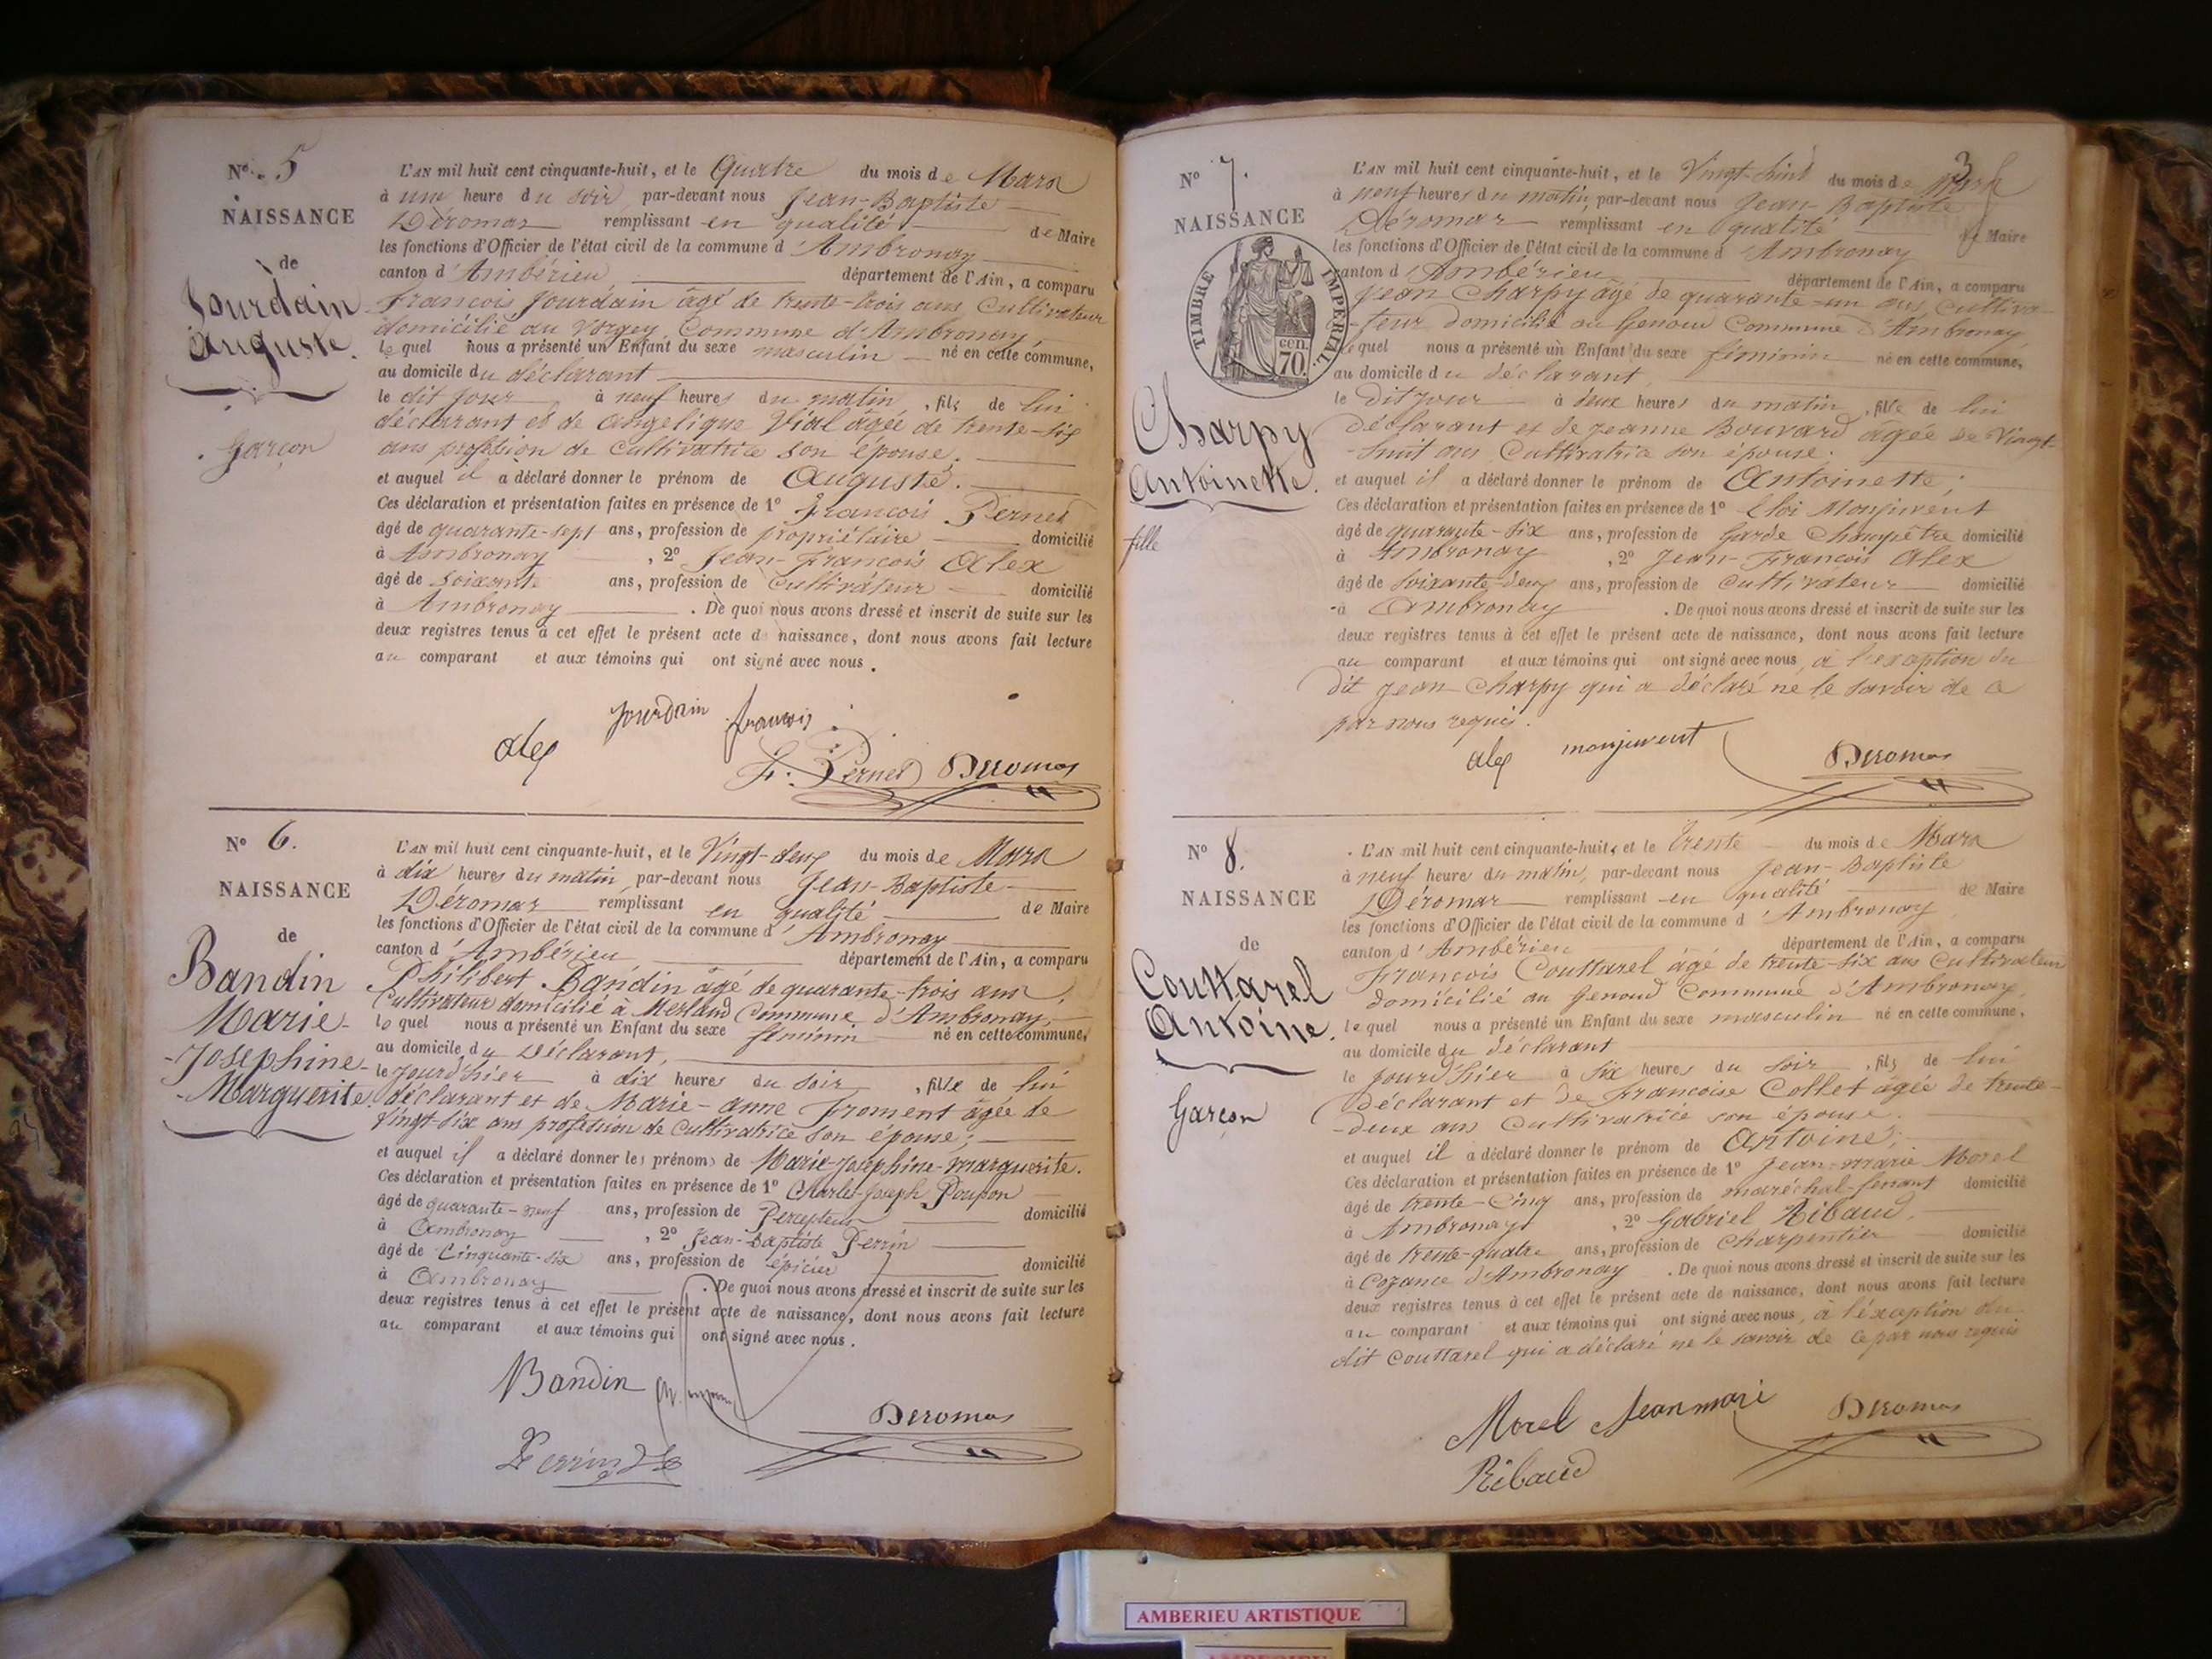 N° 5
NAISSANCE
de
Jourdain
Auguste.
Garçon
L'AN mil huit cent cinquante-huit, et le Quatre du mois de Mars
à une heure du soir par-devant nous Jean-Baptiste
Déromas remplissant en qualité de Maire
les fonctions d'Officier de l'état civil de la commune d'Ambronay
canton d'Ambérieu département de l'Ain, a comparu
François Jourdain âgé de trente-trois ans Cultivateur
domicilié au Vorgey, Commune d'Ambronay,
lequel nous a présenté un Enfant du sexe masculin né en cette commune,
au domicile du déclarant
le dit jour à neuf heures du matin, fils de lui
déclarant et de Angelique Vial âgée de trente-six
ans profession de Cultivatrice son épouse.
et auquel il a déclaré donner le prénom de Auguste.
Ces déclaration et présentation faites en présence de 1° François Pernet
âgé de quarante-sept ans, profession de propriétaire domicilié
à Ambronay, 2° Jean-François Alex
âgé de soixante ans, profession de Cultivateur domicilié
à Ambronay. De quoi nous avons dressé et inscrit de suite sur les
deux registres tenus à cet effet le présent acte de naissance, dont nous avons fait lecture
au comparant et aux témoins qui ont signé avec nous.
Jourdain françois
alex
F. Pernet Deromas
N° 6.
NAISSANCE
de
Bandin
Marie-
-Josephine-
-Marguerite.
L'AN mil huit cent cinquante-huit, et le Vingt-deux du mois de Mars
à dix heures du matin, par-devant nous Jean-Baptiste
Déromas remplissant en qualité de Maire
les fonctions d'Officier de l'état civil de la commune d'Ambronay
canton d'Ambérieu département de l'Ain, a comparu
Philibert Bandin âgé de quarante-trois ans,
Cultivateur domicilié à Merland Commune d'Ambronay,
lequel nous a présenté un Enfant du sexe féminin né en cette commune,
au domicile du Déclarant,
le jour d'hier à dix heures du soir, fille de lui
déclarant et de Marie-anne Froment âgée de
vingt-six ans profession de Cultivatrice son épouse;
et auquel il a déclaré donner les prénoms de Marie-Josephine-Marguerite.
Ces déclaration et présentation faites en présence de 1° Charles-Joseph Poupon
âgé de quarante-neuf ans, profession de Percepteur domicilié
à Ambronay, 2° Jean-baptiste Perrin
âgé de Cinquante-six ans, profession de épicier domicilié
à Ambronay. De quoi nous avons dressé et inscrit de suite sur les
deux registres tenus à cet effet le présent acte de naissance, dont nous avons fait lecture
au comparant et aux témoins qui ont signé avec nous.
Bandin
Deromas
Perrin
3
N° 7.
NAISSANCE
TIMBRE IMPÉRIAL.
cen.
70.
Charpy
Antoinette.
fille
L'AN mil huit cent cinquante-huit, et le Vingt-huit du mois de Mars
à neuf heures du matin, par-devant nous Jean-Baptiste
Déromas remplissant en qualité de Maire
les fonctions d'Officier de l'état civil de la commune d'Ambronay
canton d'Ambérieu département de l'Ain, a comparu
Jean Charpy âgé de quarante-un ans Cultiva-
-teur domicilié au Genoud Commune d'Ambronay
lequel nous a présenté un Enfant du sexe féminin né en cette commune,
au domicile du déclarant,
le dit jour à deux heures du matin, fille de lui
déclarant et de Jeanne Bouvard âgée de Vingt-
-huit ans Cultivatrice son épouse.
et auquel il a déclaré donner le prénom de Antoinette;
Ces déclaration et présentation faites en présence de 1° Eloi Monjuvent
âgé de quarante-six ans, profession de Garde Champêtre domicilié
à Ambronay, 2° Jean-François Alex
âgé de soixante-deux ans, profession de Cultivateur domicilié
à Ambronay. De quoi nous avons dressé et inscrit de suite sur les
deux registres tenus à cet effet le présent acte de naissance, dont nous avons fait lecture
au comparant et aux témoins qui ont signé avec nous, à l'exception du
dit Jean Charpy qui a déclaré ne le savoir de ce
par nous requis.
alex monjuvent Deromas
N° 8.
NAISSANCE
de
Couttarel
Antoine.
Garçon
L'AN mil huit cent cinquante-huit, et le trente du mois de Mars
à neuf heures du matin, par-devant nous Jean-Baptiste
Déromas remplissant en qualité de Maire
les fonctions d'Officier de l'état civil de la commune d'Ambronay
canton d'Ambérieu département de l'Ain, a comparu
François Couttarel âgé de trente-six ans Cultivateur
domicilié au Genoud Commune d'Ambronay,
lequel nous a présenté un Enfant du sexe masculin né en cette commune,
au domicile du déclarant
le jour d'hier à six heures du soir, fils de lui
déclarant et de Françoise Collet âgée de trente-
-deux ans Cultivatrice son épouse.
et auquel il a déclaré donner le prénom de Antoine;
Ces déclaration et présentation faites en présence de 1° Jean-marie Morel
âgé de trente-Cinq ans, profession de maréchal-ferant domicilié
à Ambronay, 2° Gabriel Ribaud,
âgé de trente-quatre ans, profession de Charpentier domicilié
à Cozance d'Ambronay. De quoi nous avons dressé et inscrit de suite sur les
deux registres tenus à cet effet le présent acte de naissance, dont nous avons fait lecture
au comparant et aux témoins qui ont signé avec nous, à l'éxception du
dit Couttarel qui a déclaré ne le savoir de ce par nous requis
Morel Jean mari Deromas
Ribaud
AMBERIEU ARTISTIQUE
AMBERIEU